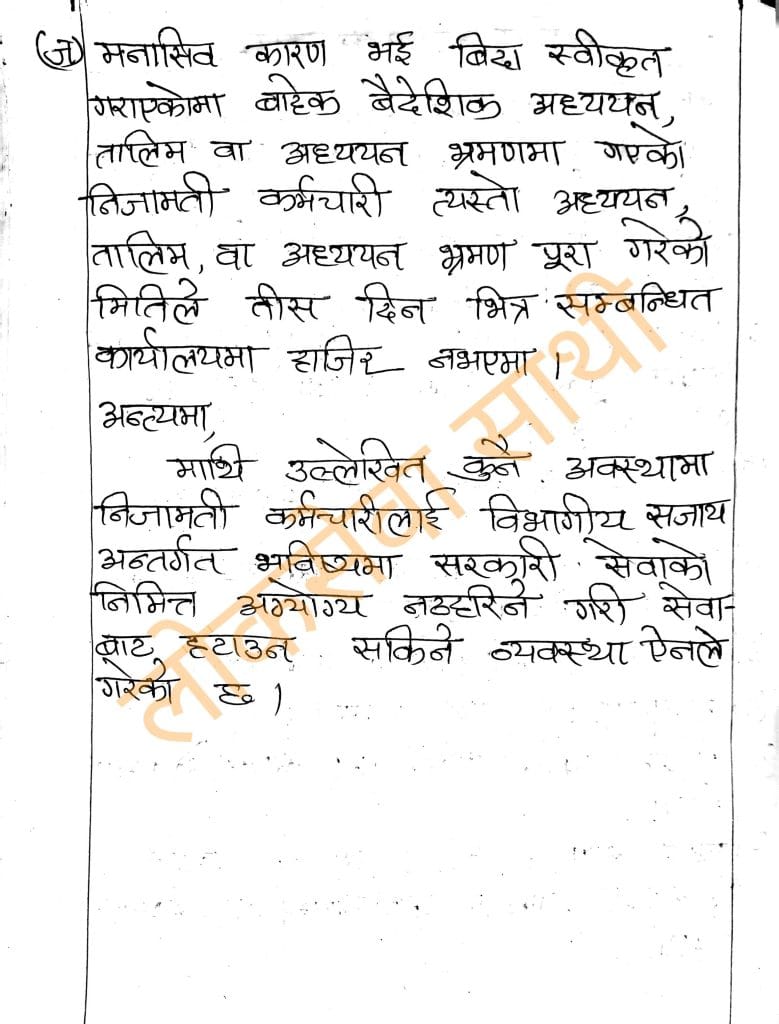 (ज) मनासिव कारण भई बिदा स्वीकृत
गराएकोमा बाहेक बैदेशिक अध्ययन,
तालिम वा अध्ययन भ्रमणमा गएको
निजामती कर्मचारी त्यस्तो अध्ययन,
तालिम, वा अध्ययन भ्रमण पूरा गरेको
मितिले तीस दिन भित्र सम्बन्धित
कार्यालयमा हाजिर नभएमा ।
अन्त्यमा,
माथि उल्लेखित कुनै अवस्थामा
निजामती कर्मचारीलाई विभागीय सजाय
अन्तर्गत भबिष्यमा सरकारी सेवाको
निमित्त अयोग्य नठहरिने गरी सेवा-
बाट हटाउन सकिने व्यवस्था ऐनले
गरेको छ ।
लोकसेवा साथी